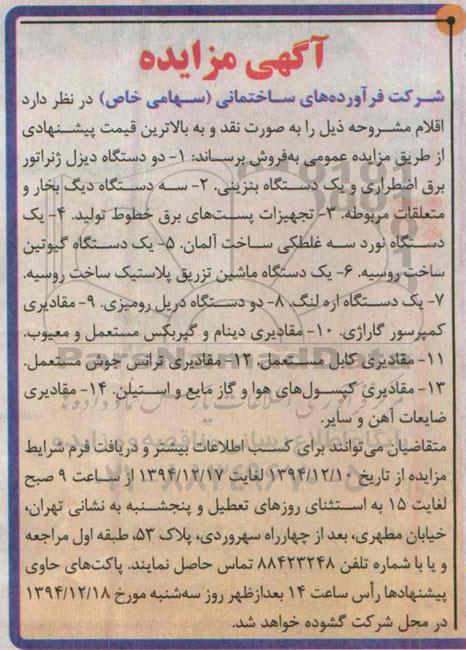 آگهی مزایده
شرکت فرآورده‌های ساختمانی (سهامی خاص) در نظر دارد
اقلام مشروحه ذیل را به صورت نقد و به بالاترین قیمت پیشنهادی
از طریق مزایده عمومی به‌فروش برساند: ۱- دو دستگاه دیزل ژنراتور
برق اضطراری و یک دستگاه بنزینی. ۲- سه دستگاه دیگ بخار و
متعلقات مربوطه. ۳- تجهیزات پست‌های برق خطوط تولید. ۴- یک
دستگاه نورد سه غلطکی ساخت آلمان. ۵- یک دستگاه گیوتین
ساخت روسیه. ۶- یک دستگاه ماشین تزریق پلاستیک ساخت روسیه.
۷- یک دستگاه اره لنگ. ۸- دو دستگاه دریل رومیزی. ۹- مقادیری
کمپرسور گاراژی. ۱۰- مقادیری دینام و گیربکس مستعمل و معیوب.
۱۱- مقادیری کابل مستعمل. ۱۲- مقادیری ترانس جوش مستعمل.
۱۳- مقادیری کپسول‌های هوا و گاز مایع و استیلن. ۱۴- مقادیری
ضایعات آهن و سایر.
متقاضیان می‌توانند برای کسب اطلاعات بیشتر و دریافت فرم شرایط
مزایده از تاریخ ۱۳۹۴/۱۲/۱۰ لغایت ۱۳۹۴/۱۲/۱۷ از ساعت ۹ صبح
لغایت ۱۵ به استثنای روزهای تعطیل و پنجشنبه به نشانی تهران،
خیابان مطهری، بعد از چهارراه سهروردی، پلاک ۵۳، طبقه اول مراجعه
و یا با شماره تلفن ۸۸۴۲۳۲۴۸ تماس حاصل نمایند. پاکت‌های حاوی
پیشنهادها رأس ساعت ۱۴ بعدازظهر روز سه‌شنبه مورخ ۱۳۹۴/۱۲/۱۸
در محل شرکت گشوده خواهد شد.